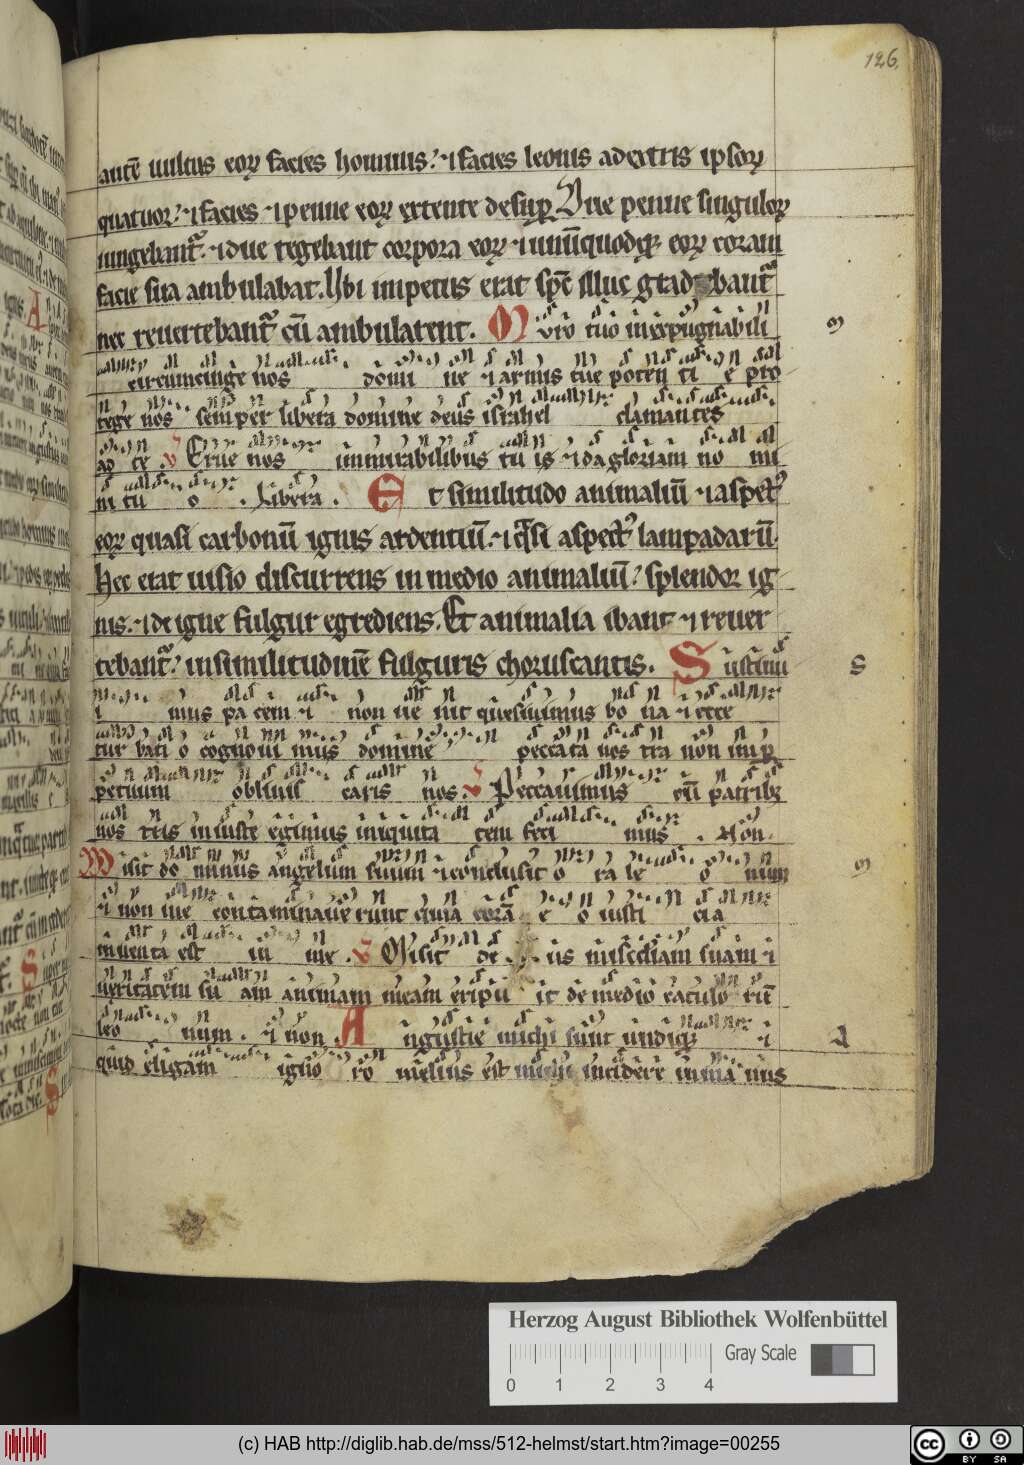 126.
autē uultus eoꝝ facies hominis. ⁊ facies leonis adextris ipsoꝝ
quatuor. ⁊ facies ⁊ penne eoꝝ extente desuꝑ Due penne singuloꝝ
iungebant᷑. ⁊ due tegebant corpora eoꝝ ⁊ unūquodqꝫ eoꝝ coram
facie sua ambulabat. Ubi impetus erat spc̄ illuc grad bant᷑
nec reuertebant᷑ cū ambularent. Muro tuo inexpugnabili
circumcinge nos domi ne ⁊ armis tue poten ti e pro
tege nos semper libera domine deus israhel clamantes
ad te . v Erue nos inmirabilibus tu is ⁊ da gloriam no mi
ni tu o . Libera . Et similitudo animaliū ⁊ aspect᷑
eoꝝ quasi carbonū ignis ardentiū. ⁊ q̄si aspect᷑ lampadarū.
Hec erat uisio discurrens in medio animaliū. splendor ig
nis. ⁊ de igne fulgur egrediens. Et animalia ibant ⁊ reuer
tebant᷑. insimilitudinē fulguris choruscantis. Sustinu
i mus pacem ⁊ non ue nit quesiuimus bo na ⁊ ecce
tur bati o cognoui mus domine peccata nostra non inꝑ
petuum obliuis caris nos. v Peccauimus cū patribꝫ
nostris iniuste egimus iniquita tem feci mus . Non.
Misit dominus angelum suum ⁊ conclusit o ra le o num
⁊ non me contaminauerunt quia corā e o iusti cia
inuenta est in me . v Misit de us mīsc̄diam suam ⁊
ueritatem su am animam meam eripu it de medio catulorū
leo num . ⁊ non . Angustie michi sunt undiqꝫ ⁊
quid eligam igno ro melius est michi incidere inmanus
S
A
Herzog August Bibliothek Wolfenbüttel
Gray Scale
0 1 2 3 4
(c) HAB http://diglib.hab.de/mss/512-helmst/start.htm?image=00255
cc BY SA